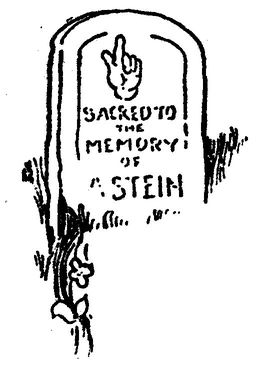 SACRED TO
THE
MEMORY
OF
A. STEIN